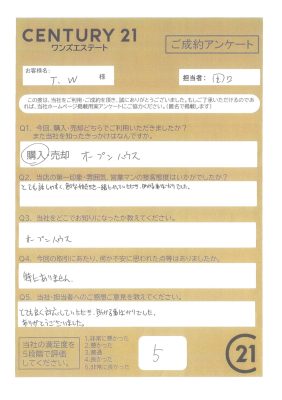 CENTURY 21
ワンズエステート
ご成約アンケート
お客様名:
T. W 様
担当者:
この度は、当社をご利用・ご成約を頂き、誠にありがとうございました。もしご了承いただけるのであれ
ば、当社ホームページ掲載用アンケートにご協力ください。(匿名で掲載します)
Q1. 今回、購入・売却どちらでご利用いただきましたか?
また当社を知ったきっかけはなんですか。
購入・売却 オープンハウス
Q2. 当店の第一印象・雰囲気、営業マンの接客態度はいかがでしたか?
とても話しやすく、
Q3. 当社をどこでお知りになったか教えてください。
オープンハウス
Q4. 今回の取引にあたり、何か不安に思われた点等はありましたか。
特にありません。
Q5. 当社・担当者へのご感想ご意見を教えてください。
とても良く対応していただき、助かる事ばかりでした。
ありがとうございました。
当社の満足度を
5段階で評価
してください。
1.非常に悪かった
2.悪かった
3.普通
4.良かった
5.非常に良かった
5
21